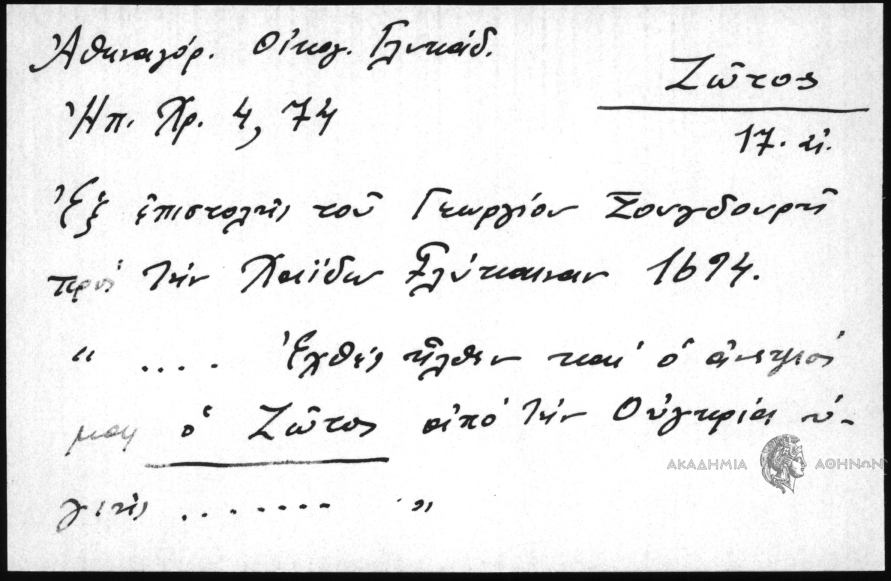 Ἀθηναγόρ. Οἰκογ. Γλυκάδ.
Ζῶτος
Ἠπ. Χρ. 4, 74
17. αἰ.
Ἐξ ἐπιστολῆς τοῦ Γεωργίου Σουγδουρῆ
πρὸς τὴν Χάιδω Γλύκαιναν 1694.
“ .... Ἐχθὲς ἦλθεν καὶ ὁ ἀνεψιός
μου ὁ Ζῶτος ἀπὸ τὴν Οὑγκρία ὑ-
γιὴς ....... ”
ΑΚΑΔΗΜΙΑ ΑΘΗΝΩΝ